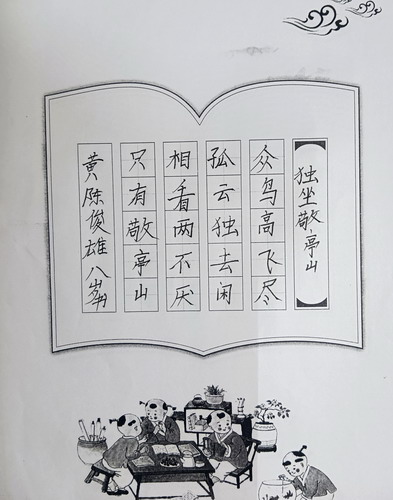 独坐敬亭山
众鸟高飞尽
孤云独去闲
相看两不厌
只有敬亭山
黄陈俊雄八岁书